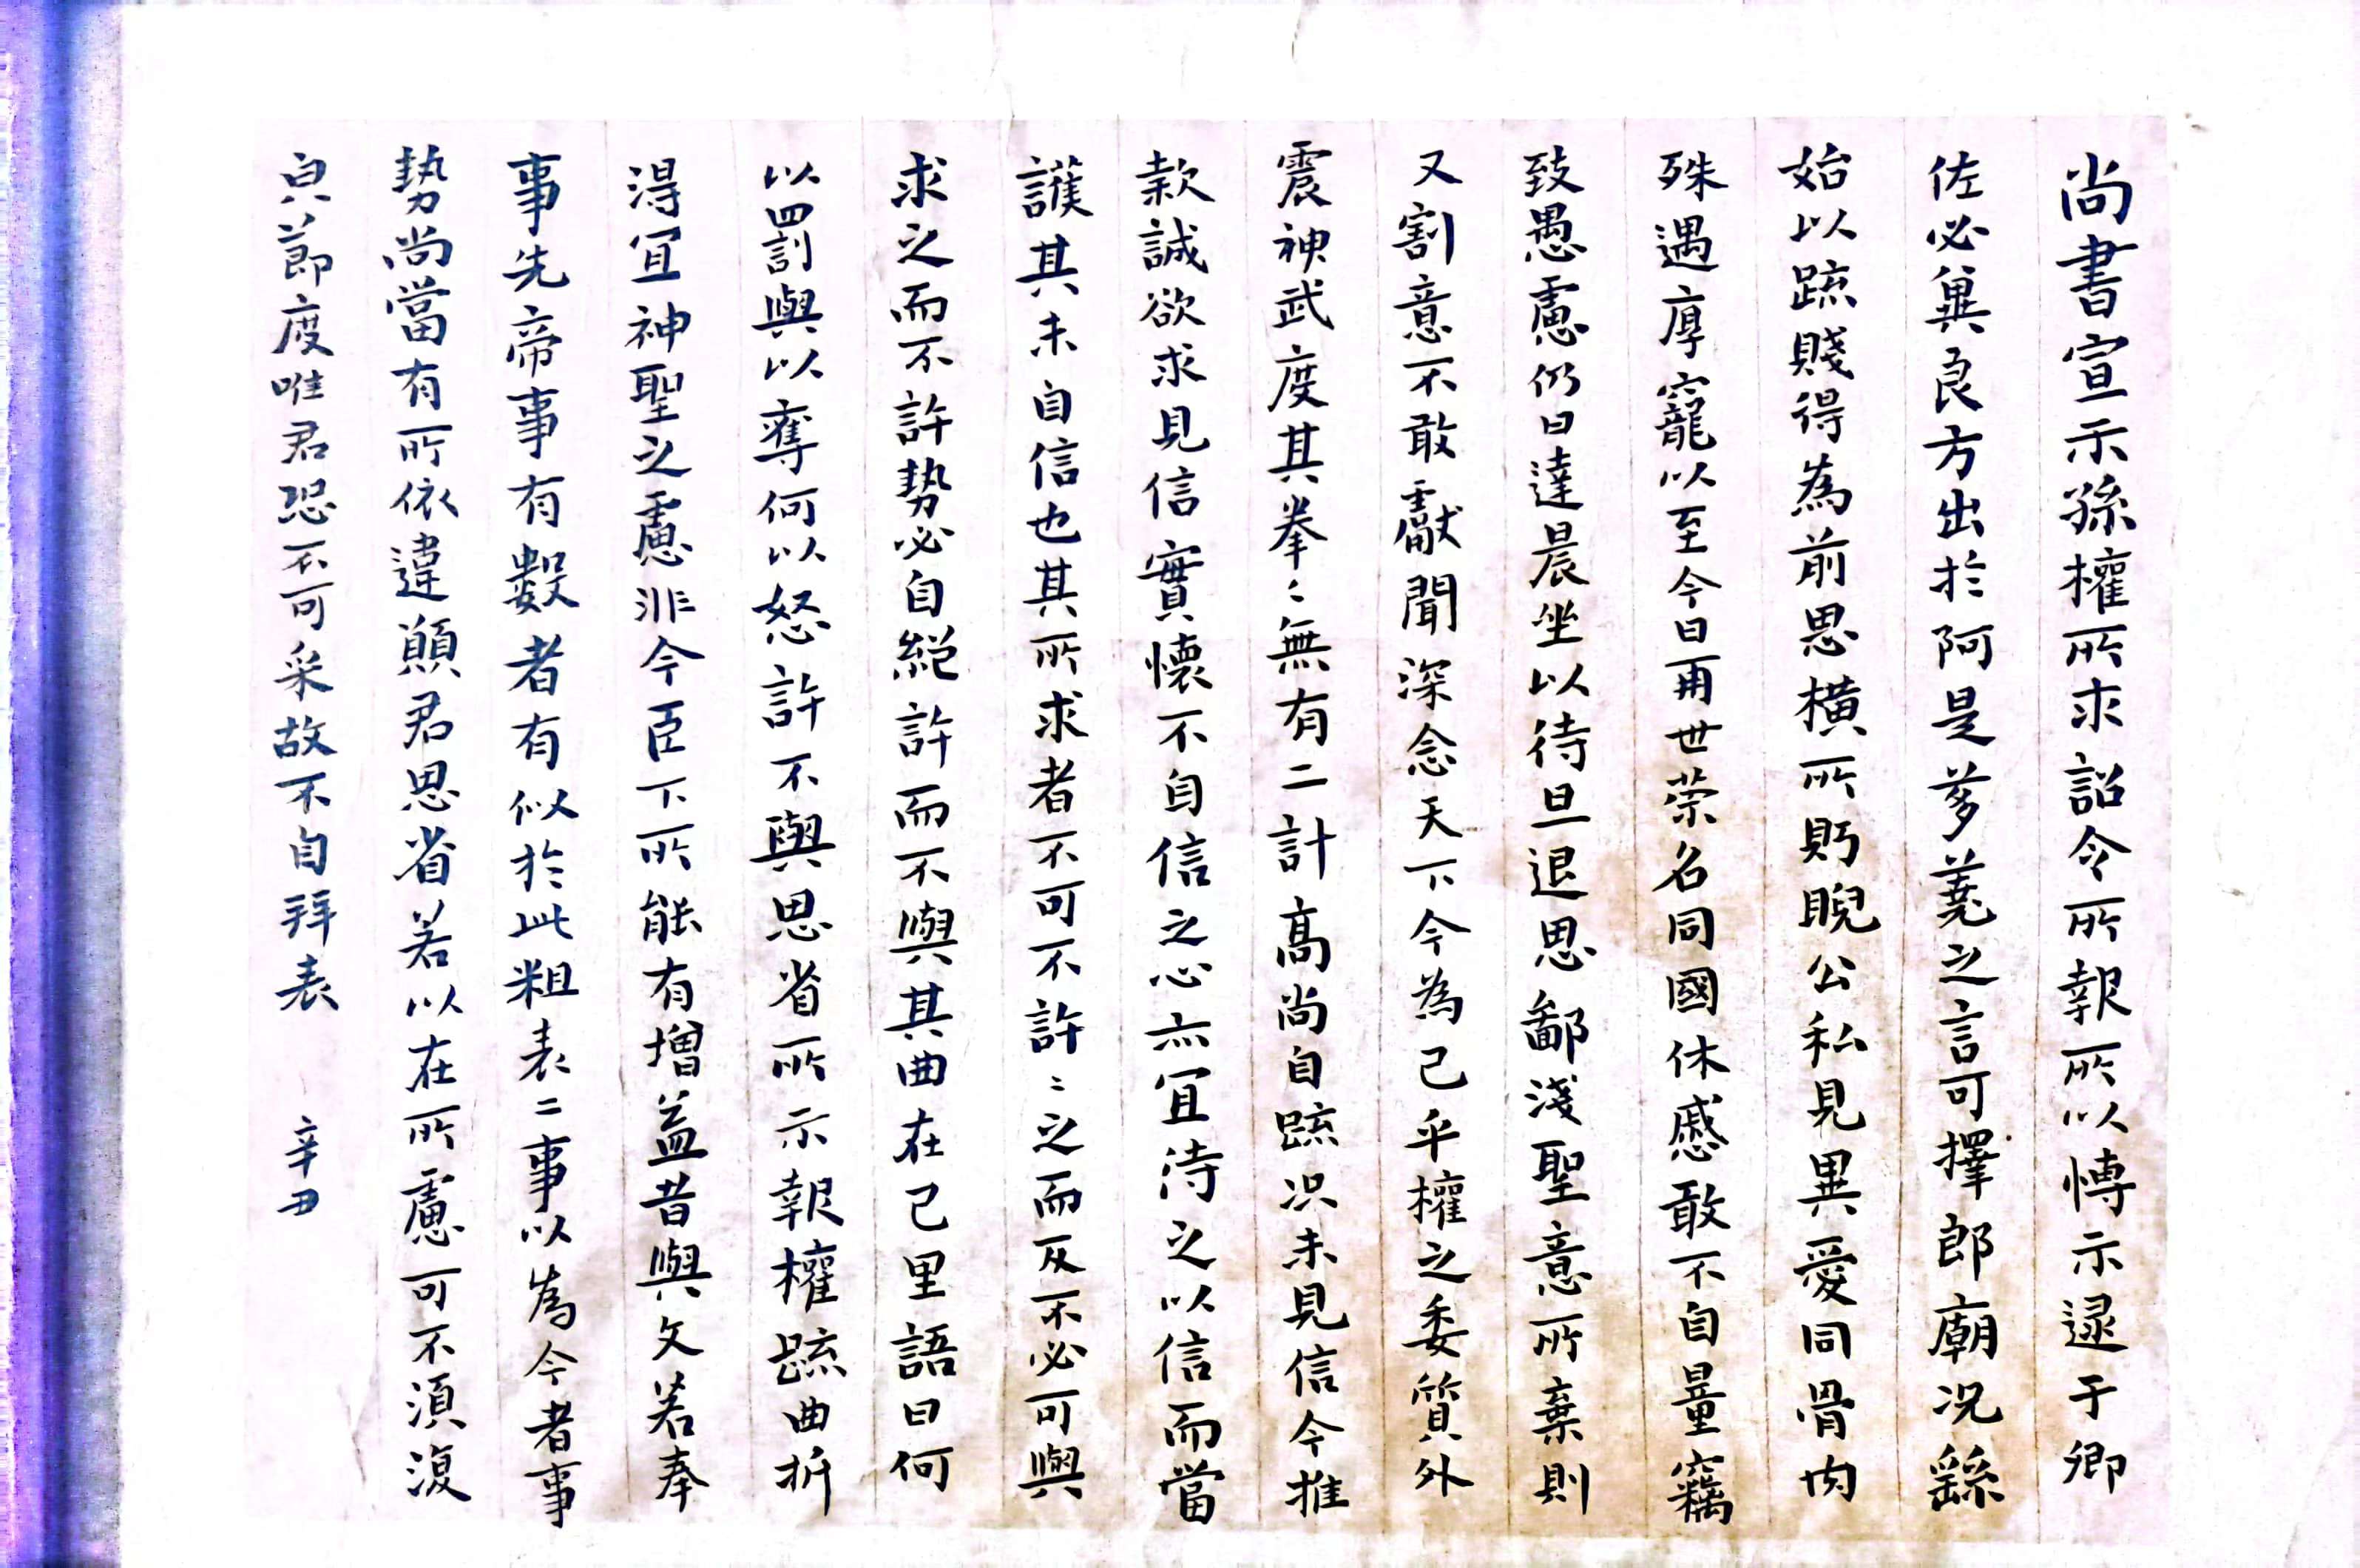 尚書宣示孫權所求詔令所報所以博示逮于卿
佐必冀良方出於阿是芻蕘之言可擇郎廟況繇
始以疏賤得為前恩橫所眄睨公私見異愛同骨肉
殊遇厚寵以至今日再世榮名同國休慼敢不自量竊
致愚慮仍日達晨坐以待旦退思鄙淺聖意所棄則
又割意不敢獻聞深念天下今為已平權之委質外
震神武度其拳〻無有二計高尚自疏況未見信今推
款誠欲求見信實懷不自信之心亦宜待之以信而當
護其未自信也其所求者不可不許〻之而反不必可與
求之而不許勢必自絕許而不與其曲在己里語曰何
以罰與以奪何以怒許不與思省所示報權疏曲折
得宜神聖之慮非今臣下所能有增益昔與文若奉
事先帝事有數者有似於此粗表二事以為今者事
勢尚當有所依違願君思省若以在所慮可不須復
皃節度唯君恐不可采故不自拜表 辛丑